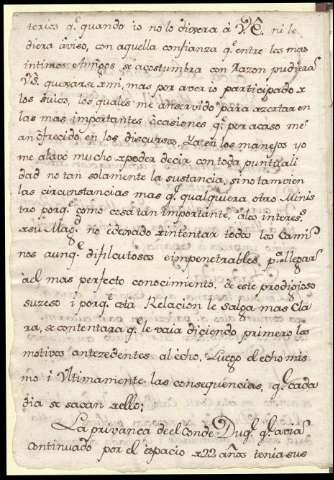 terico q̃. quando io no lo dixera à V.E. ni le
diera aviso, con aquella confianza q̃. entre los mas
intimos Amigos se acostumbra con Razon pudiera
V.E. quexarse mas por aver io participado
los suios, los quales me an servido para azertar en
las mas importantes ocasiones q̃. por acaso me
an ofrecido en los discursos, ya en los manejos yo
me alavo mucho poder decir con toda puntuali
dad no tan solamente la sustancia, si no tamvien
las circunstancias mas q̃. qualquiera otro Minis
tro porq̃. como cosa tan importante, a los interes.
su Mag. no e dexado intentar todos los Cami
nos aunq̃. dificultosos e impenetrables, p.ª llegar
al mas perfecto conocimiento, de este prodigioso
suzeso i porq̃. esta Relacion le salga mas Cla
ra, se contentara q̃. le vaia diciendo primero los
motivos antezedentes al echo, Luego el echo mis
mo i Vltimamente las consequencias, q̃. cada
dia se sacan ello;
La privanca de el Conde Duq̃. q̃. avia
continuado por el espacio 22 años tenia sus